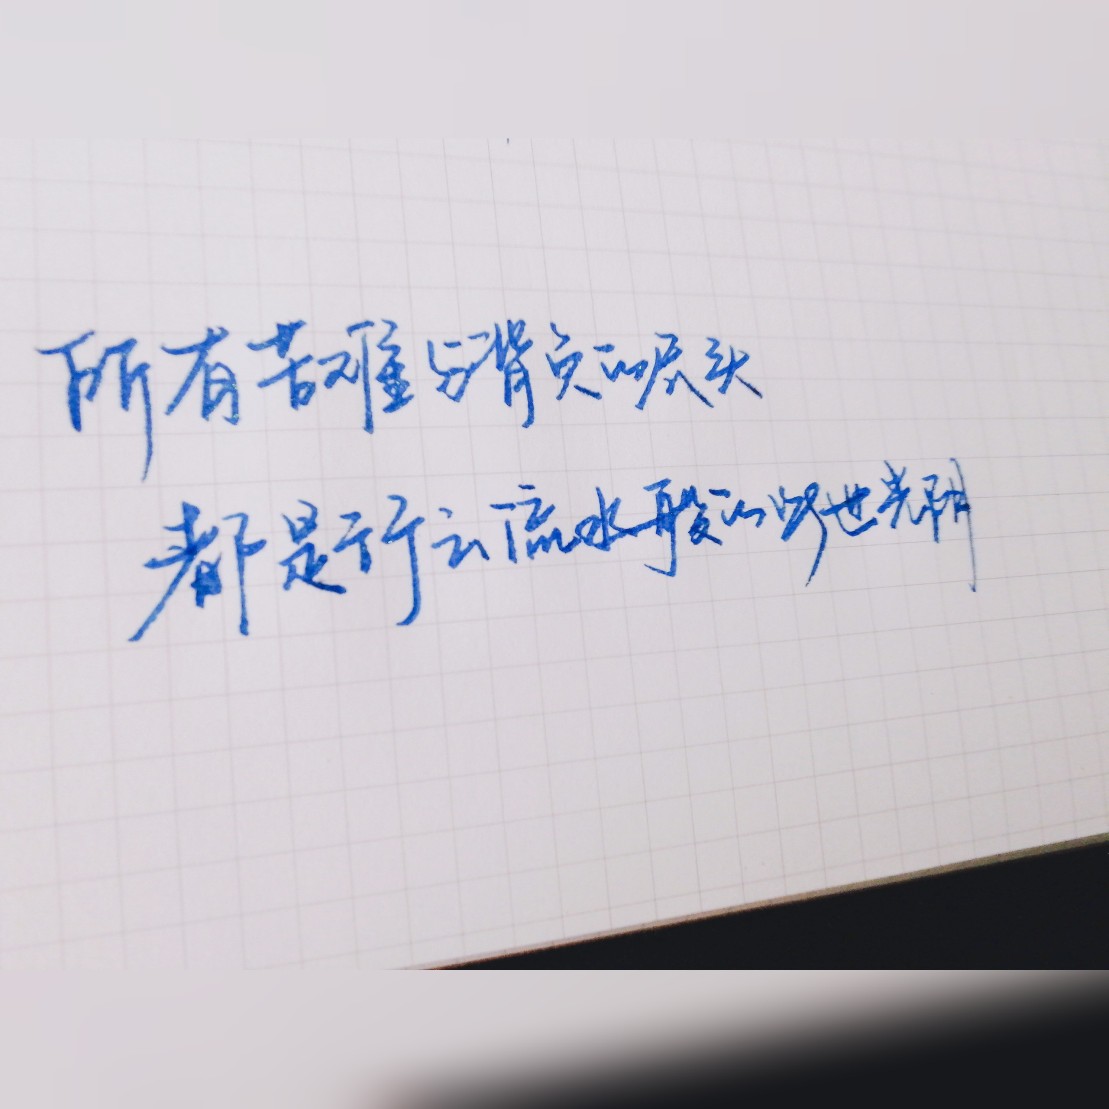 所有苦难与背负的尽头
都是行云流水般的此世光阴